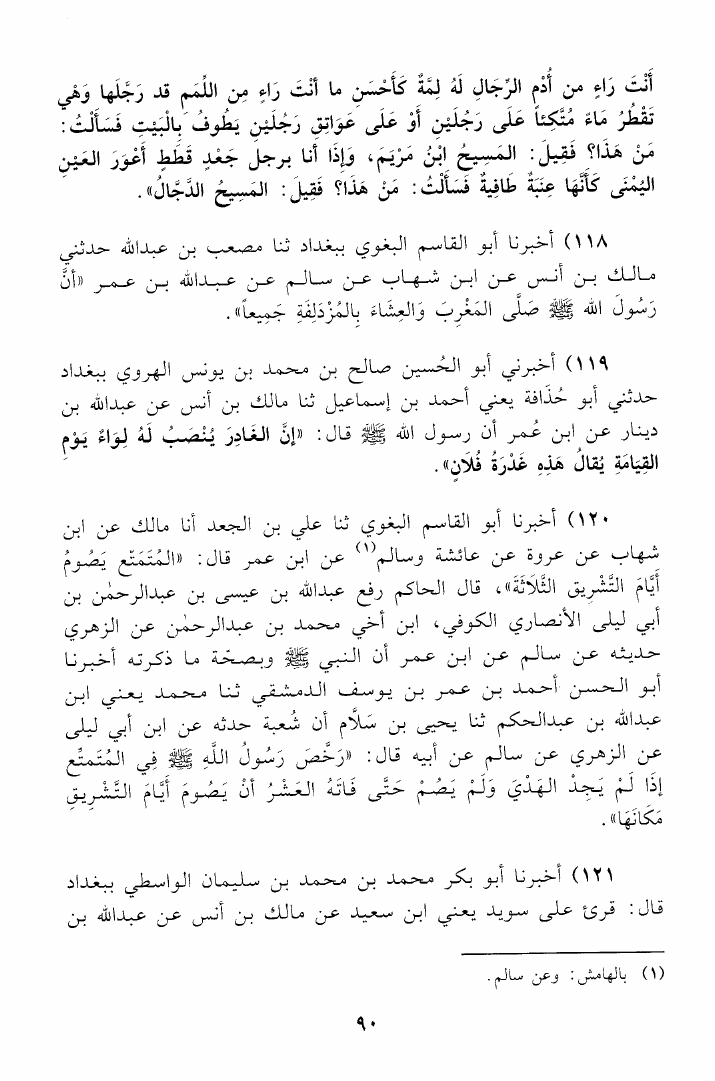 أَنْتَ رَاءٍ من أُدْمِ الرِّجَالِ لَهُ لِمَّةٌ كَأَحْسَنِ ما أنْتَ رَاءٍ مِن اللِّمَمِ قد رَجَّلَها وَهْي
تَقْطُرُ مَاءً مُتَّكِئاً عَلَى رَجُلَيْنِ أَوْ عَلَى عَوَاتِقِ رَجُلَيْنِ يَطُوفُ بِالْبَيْتِ فَسَأَلْتُ:
مَنْ هَذَا؟ فَقِيلَ: المَسِيحُ ابْنُ مَرْيَمَ، وَإِذَا أنا برجلٍ جَعْدٍ قَطَطٍ أعْوَرَ العَيْنِ
اليُمْنَى كَأَنَّهَا عِنَبَةٌ طَافِيةٌ فَسَأَلْتُ: مَنْ هَذَا؟ فَقِيلَ: المَسِيحُ الدَّجَّالُ».
١١٨) أخبرنا أبو القاسم البغوي ببغداد ثنا مصعب بن عبدالله حدثني
مالك بن أنس عن ابن شهاب عن سالم عن عبدالله بن عمر «أنَّ
رَسُولَ الله ﷺ صَلَّى المَغْرِبَ وَالعِشَاءَ بِالمُزْدَلِفَةِ جَمِيعاً».
١١٩) أخبرني أبو الحُسين صالح بن محمد بن يونس الهروي ببغداد
حدثني أبو حُذَافة يعني أحمد بن إسماعيل ثنا مالك بن أنس عن عبدالله بن
دينار عن ابن عُمر أن رسول الله ﷺ قال: «إنَّ الغَادِرَ يُنْصَبُ لَهُ لِوَاءٌ يَوْمِ
القِيَامَةِ يُقالُ هَذِهِ غَدْرَةُ فُلَانٍ».
١٢٠) أخبرنا أبو القاسم البغوي ثنا علي بن الجعد أنا مالك عن ابن
شهاب عن عروة عن عائشة وسالم(١) عن ابن عمر قال: «المُتَمَتّع يَصُومُ
أَيَّامَ التَّشْرِيق الثَّلَاثَةَ»، قال الحاكم رفع عبدالله بن عيسى بن عبدالرحمٰن بن
أبي ليلى الأنصاري الكوفي، ابن أخي محمد بن عبدالرحمٰن عن الزهري
حديثه عن سالم عن ابن عمر أن النبي ﷺ وبصحّة ما ذكرته أخبرنا
أبو الحسن أحمد بن عمر بن يوسف الدمشقي ثنا محمد يعني ابن
عبدالله بن عبدالحكم ثنا يحيى بن سَلَّام أن شُعبة حدثه عن ابن أبي ليلى
عن الزهري عن سالم عن أبيه قال: «رَخَّصَ رَسُولُ اللَّهِ ﷺ فِي المُتَمتِّع
إذَا لَمْ يَجِدْ الهَدْيَ وَلَمْ يَصُمْ حَتَّى فَاتَهُ العَشْرُ أنْ يَصُومَ أَيَّامَ التَّشْرِيقِ
مَكَانَهَا».
١٢١) أخبرنا أبو بكر محمد بن محمد بن سليمان الواسطي ببغداد
قال: قرئ على سويد يعني ابن سعيد عن مالك بن أنس عن عبدالله بن
(١) بالهامش: وعن سالم.
٩٠